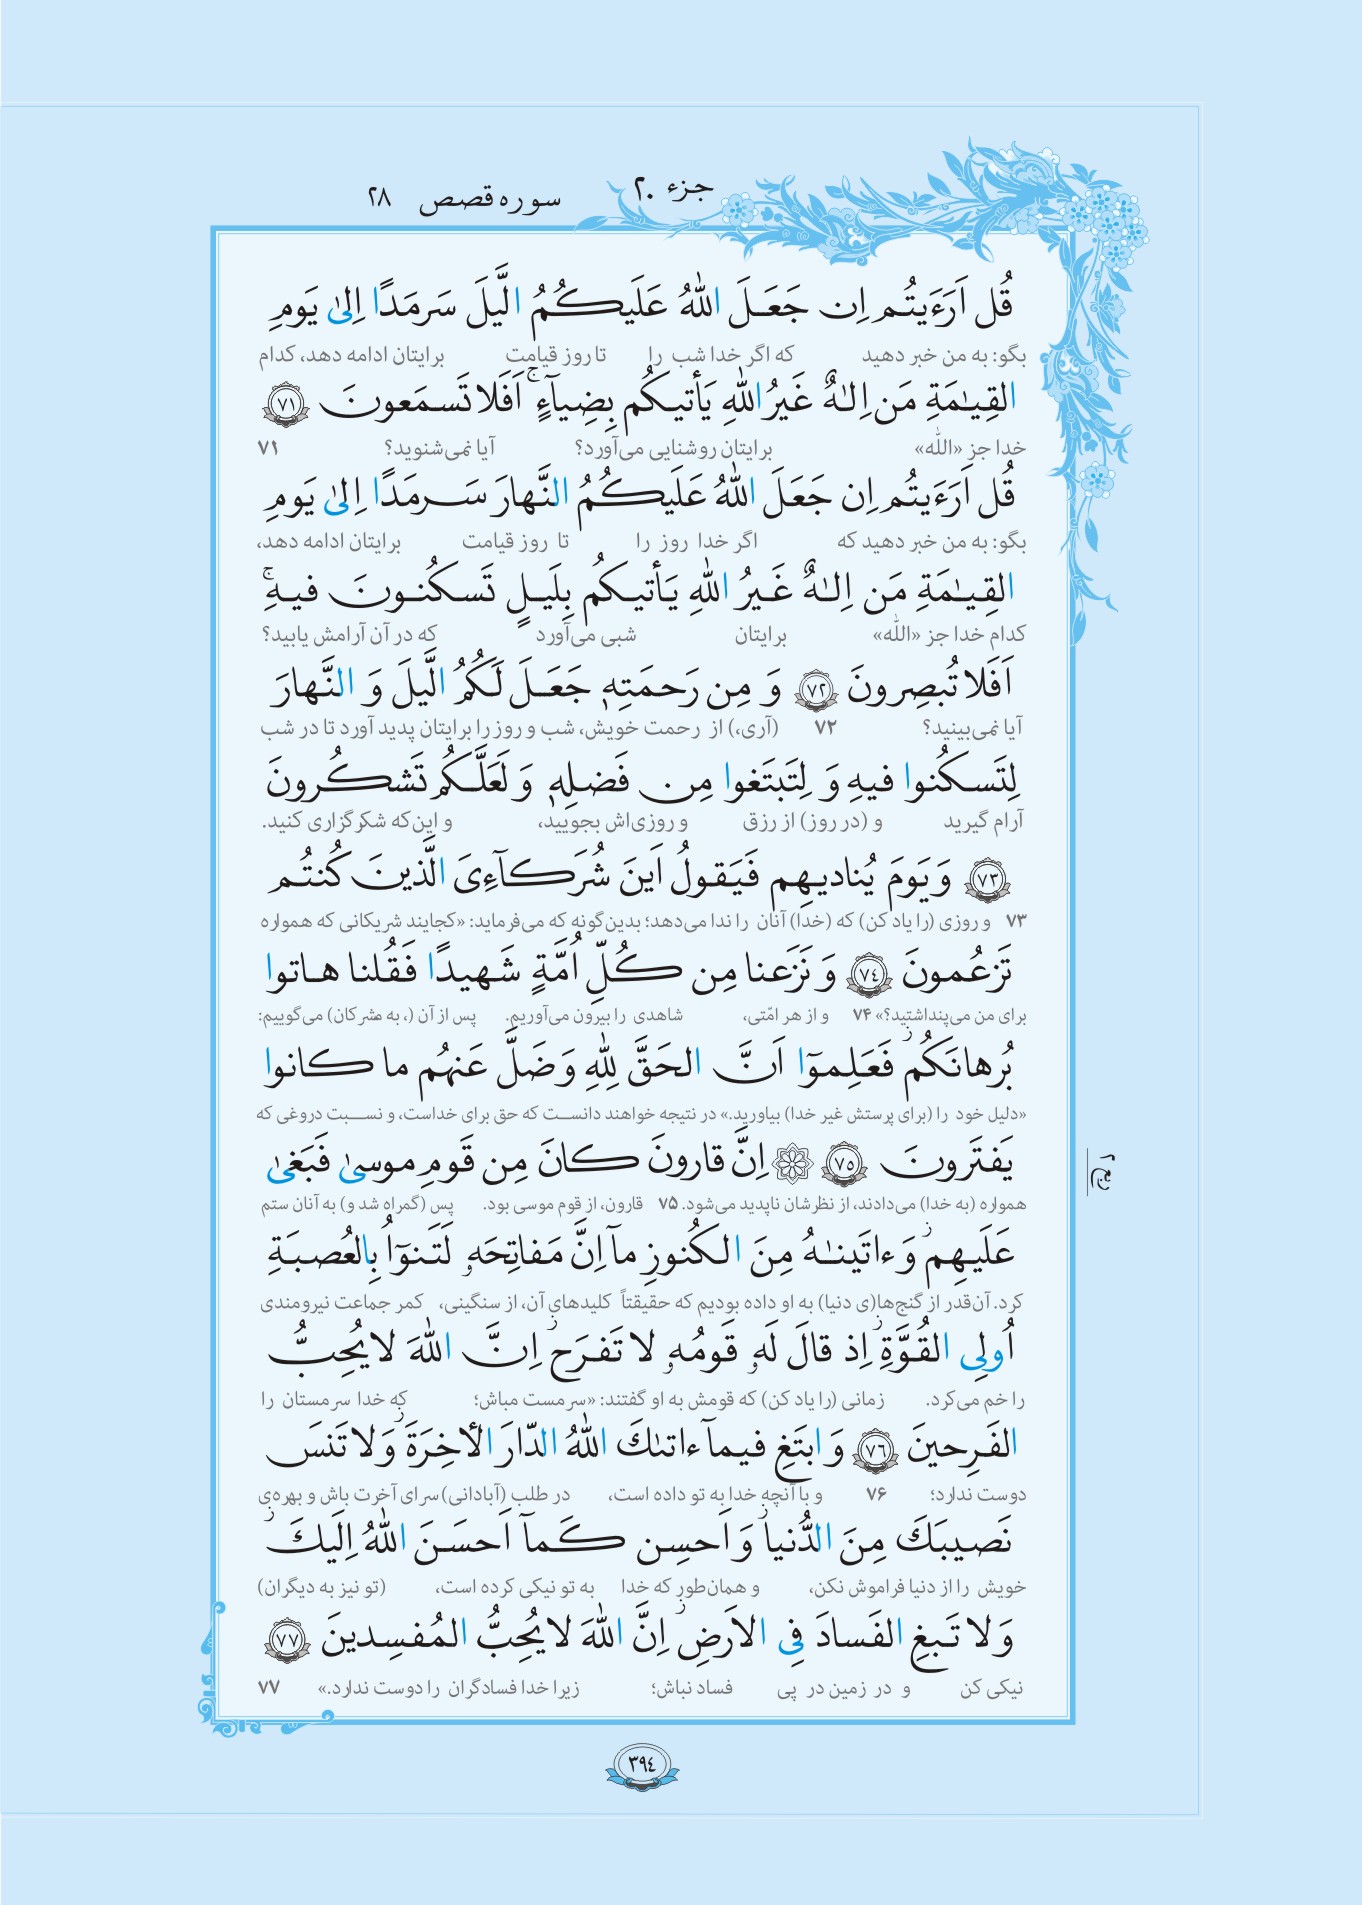 جزء ۲۰
سوره قصص ۲۸
قُل اَرَءَيتُم اِن جَعَلَ اللّٰهُ عَلَيكُمُ الَّيلَ سَرمَدًا اِلىٰ يَومِ
بگو: به من خبر دهید که اگر خدا شب را تا روز قیامت برایتان ادامه دهد، کدام
القِيٰمَةِ مَن اِلٰهٌ غَيرُ اللّٰهِ يَأتيكُم بِضِيآءٍ ۚ اَفَلا تَسمَعونَ ﴿٧١﴾
خدا جز «اللّٰه» برایتان روشنایی می‌آورد؟ آیا نمی‌شنوید؟ ۷۱
قُل اَرَءَيتُم اِن جَعَلَ اللّٰهُ عَلَيكُمُ النَّهارَ سَرمَدًا اِلىٰ يَومِ
بگو: به من خبر دهید که اگر خدا روز را تا روز قیامت برایتان ادامه دهد،
القِيٰمَةِ مَن اِلٰهٌ غَيرُ اللّٰهِ يَأتيكُم بِلَيلٍ تَسكُنونَ فيهِ ۚ
کدام خدا جز «اللّٰه» برایتان شبی می‌آورد که در آن آرامش یابید؟
اَفَلا تُبصِرونَ ﴿٧٢﴾ وَ مِن رَحمَتِهٖ جَعَلَ لَكُمُ الَّيلَ وَ النَّهارَ
آیا نمی‌بینید؟ ۷۲ (آری،) از رحمت خویش، شب و روز را برایتان پدید آورد تا در شب
لِتَسكُنوا فيهِ وَ لِتَبتَغوا مِن فَضلِهٖ وَ لَعَلَّكُم تَشكُرونَ
آرام گیرید و (در روز) از رزق و روزی‌اش بجویید، و این‌که شکرگزاری کنید.
﴿٧٣﴾ وَ يَومَ يُناديهِم فَيَقولُ اَينَ شُرَكآءِىَ الَّذينَ كُنتُم
۷۳ و روزی (را یاد کن) که (خدا) آنان را ندا می‌دهد؛ بدین‌گونه که می‌فرماید: «کجایند شریکانی که همواره
تَزعُمونَ ﴿٧٤﴾ وَ نَزَعنا مِن كُلِّ اُمَّةٍ شَهيدًا فَقُلنا هاتوا
برای من می‌پنداشتید؟» ۷۴ و از هر امّتی، شاهدی را بیرون می‌آوریم. پس از آن (، به مشرکان) می‌گوییم:
بُرهانَكُم ۖ فَعَلِموٓا اَنَّ الحَقَّ لِلّٰهِ وَ ضَلَّ عَنهُم ما كانوا
«دلیل خود را (برای پرستش غیر خدا) بیاورید.» در نتیجه خواهند دانست که حق برای خداست، و نسبت دروغی که
يَفتَرونَ ﴿٧٥﴾ ۞ اِنَّ قارونَ كانَ مِن قَومِ موسىٰ فَبَغىٰ
همواره (به خدا) می‌دادند، از نظرشان ناپدید می‌شود. ۷۵ قارون، از قوم موسی بود. پس (گمراه شد و) به آنان ستم
عَلَيهِم ۖ وَ ءاتَينٰهُ مِنَ الكُنوزِ مآ اِنَّ مَفاتِحَهٗ لَتَنوٓاُ بِالعُصبَةِ
کرد. آن‌قدر از گنج‌ها(ی دنیا) به او داده بودیم که حقیقتاً کلیدهای آن، از سنگینی، کمر جماعت نیرومندی
اُولِى القُوَّةِ ۖ اِذ قالَ لَهٗ قَومُهٗ لا تَفرَح ۖ اِنَّ اللّٰهَ لا يُحِبُّ
را خم می‌کرد. زمانی (را یاد کن) که قومش به او گفتند: «سرمست مباش؛ که خدا سرمستان را
الفَرِحينَ ﴿٧٦﴾ وَ ابتَغِ فيمآ ءاتىٰكَ اللّٰهُ الدّارَ الأخِرَةَ ۖ وَ لا تَنسَ
دوست ندارد؛ ۷۶ و با آنچه خدا به تو داده است، در طلب (آبادانی) سرای آخرت باش و بهره‌ی
نَصيبَكَ مِنَ الدُّنيا ۖ وَ اَحسِن كَمآ اَحسَنَ اللّٰهُ اِلَيكَ ۖ
خویش را از دنیا فراموش نکن، و همان‌طور که خدا به تو نیکی کرده است، (تو نیز به دیگران)
وَ لا تَبغِ الفَسادَ فِى الاَرضِ ۖ اِنَّ اللّٰهَ لا يُحِبُّ المُفسِدينَ ﴿٧٧﴾
نیکی کن و در زمین در پی فساد نباش؛ زیرا خدا فسادگران را دوست ندارد.» ۷۷
٣٩٤